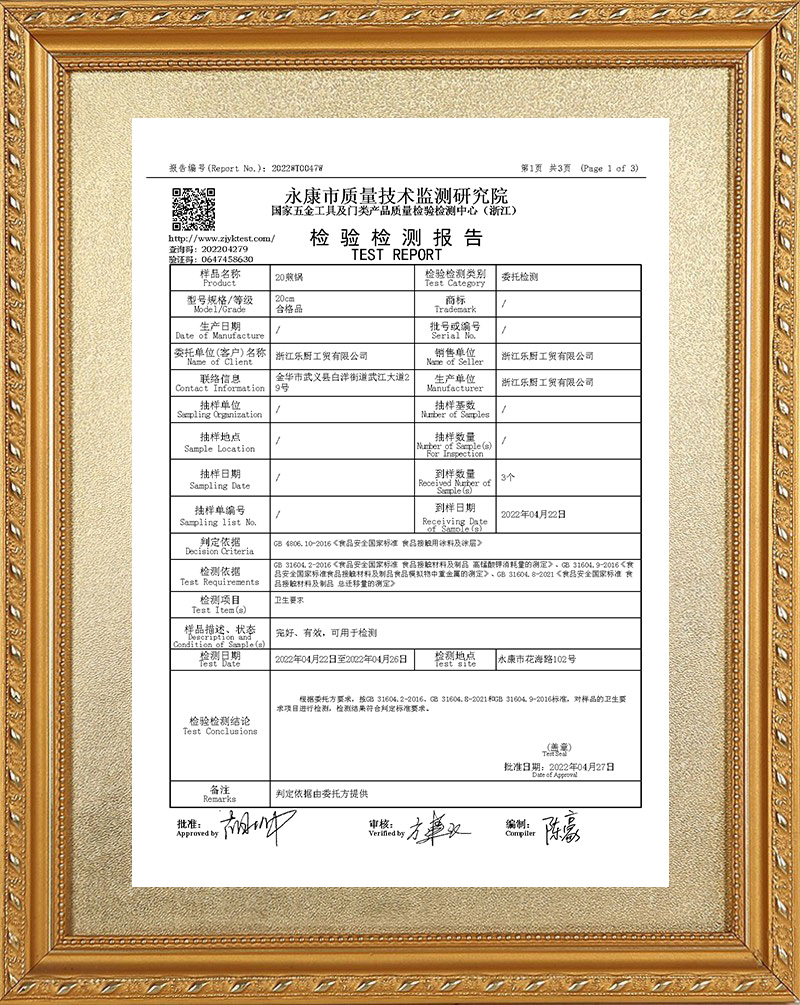 报告编号(Report No.): 2022WT0047W 第1页 共3页 (Page 1 of 3)
永康市质量技术监测研究院
国家五金工具及门类产品质量检验检测中心（浙江）
http://www.zjyktest.com/
查询码: 202204279
验证码: 0647458630
检验检测报告
TEST REPORT
样品名称 20煎锅 检验检测类别 委托检测
Product Test Category
型号规格/等级 20cm 商标 /
Model/Grade 合格品 Trademark
生产日期 / 批号或编号 /
Date of Manufacture Serial No.
委托单位(客户)名称 浙江乐厨工贸有限公司 销售单位 浙江乐厨工贸有限公司
Name of Client Name of Seller
联络信息 金华市武义县白洋街道武江大道2 生产单位 浙江乐厨工贸有限公司
Contact Information 9号 Manufacturer
抽样单位 / 抽样基数 /
Sampling Organization Number of Samples
抽样地点 / 抽样数量 /
Sample Location Number of Sample(s)
For Inspection
抽样日期 / 到样数量 3个
Sampling Date Received Number of
Sample(s)
抽样单编号 / 到样日期 2022年04月22日
Sampling list No. Receiving Date
of Sample(s)
判定依据 GB 4806.10-2016《食品安全国家标准 食品接触用涂料及涂层》
Decision Criteria
检测依据 GB 31604.2-2016《食品安全国家标准 食品接触材料及制品 高锰酸钾消耗量的测定》、GB 31604.9-2016《食
Test Requirements 品安全国家标准食品接触材料及制品食品模拟物中重金属的测定》、GB 31604.8-2021《食品安全国家标准 食
品接触材料及制品 总迁移量的测定》
检测项目 卫生要求
Test Item(s)
样品描述、状态 完好、有效，可用于检测
Description and
Condition of Sample(s)
检测日期 2022年04月22日至2022年04月26日 检测地点 永康市花海路102号
Test Date Test site
检验检测结论 根据委托方要求，按GB 31604.2-2016、GB 31604.8-2021和GB 31604.9-2016标准，对样品的卫生要
Test Conclusions 求项目进行检测，检测结果符合判定标准要求。
(盖章)
Test Seal
批准日期: 2022年04月27日
Date of Approval
备注 判定依据由委托方提供
Remarks
批准: 审核: 编制:
Approved by Verified by Compiler